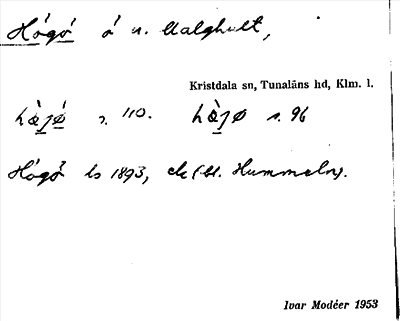 Högö ö n. Malghult,
Kristdala sn, Tunaläns hd, Klm. l.
s. 110. s. 96
Högö ls 1893, (bl. Hummeln).
Ivar Modéer 1953